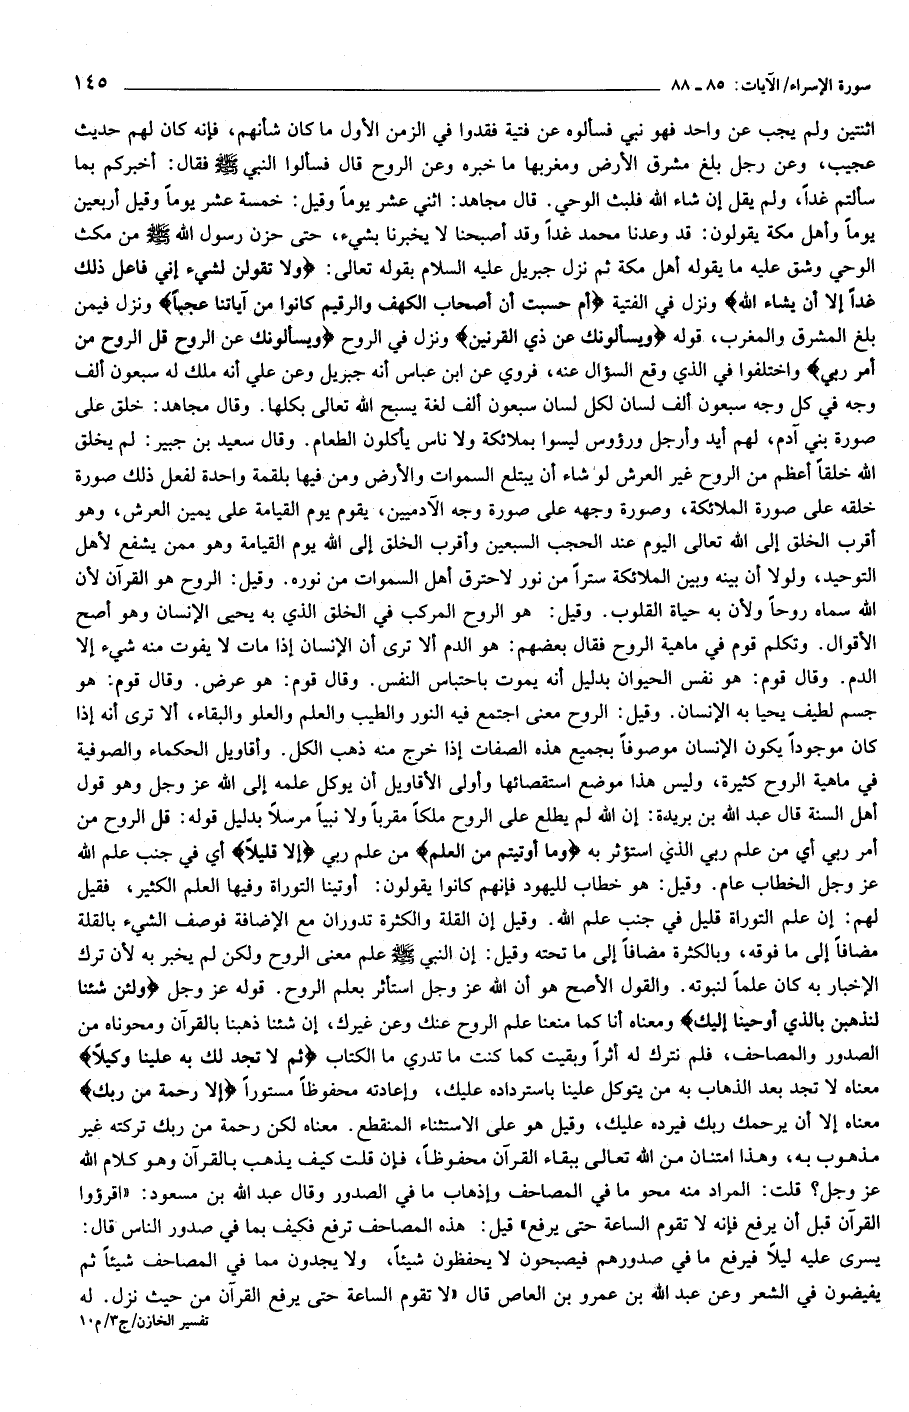 سورة الإسراء/ الآيات: ٨٥ ـ ٨٨ ١٤٥
اثنتين ولم يجب عن واحد فهو نبي فسألوه عن فتية فقدوا في الزمن الأول ما كان شأنهم، فإنه كان لهم حديث
عجيب، وعن رجل بلغ مشرق الأرض ومغربها ما خبره وعن الروح قال فسألوا النبي ﷺ فقال: أخبركم بما
سألتم غداً، ولم يقل إن شاء الله فلبث الوحي. قال مجاهد: اثني عشر يوماً وقيل: خمسة عشر يوماً وقيل أربعين
يوماً وأهل مكة يقولون: قد وعدنا محمد غداً وقد أصبحنا لا يخبرنا بشيء، حتى حزن رسول الله ﷺ من مكث
الوحي وشق عليه ما يقوله أهل مكة ثم نزل جبريل عليه السلام بقوله تعالى: ﴿ولا تقولن لشيء إني فاعل ذلك
غداً إلا أن يشاء الله﴾ ونزل في الفتية ﴿أم حسبت أن أصحاب الكهف والرقيم كانوا من آياتنا عجباً﴾ ونزل فيمن
بلغ المشرق والمغرب، قوله ﴿ويسألونك عن ذي القرنين﴾ ونزل في الروح ﴿ويسألونك عن الروح قل الروح من
أمر ربي﴾ واختلفوا في الذي وقع السؤال عنه، فروي عن ابن عباس أنه جبريل وعن علي أنه ملك له سبعون ألف
وجه في كل وجه سبعون ألف لسان لكل لسان سبعون ألف لغة يسبح الله تعالى بكلها. وقال مجاهد: خلق على
صورة بني آدم، لهم أيد وأرجل ورؤوس ليسوا بملائكة ولا ناس يأكلون الطعام. وقال سعيد بن جبير: لم يخلق
الله خلقاً أعظم من الروح غير العرش لو شاء أن يبتلع السموات والأرض ومن فيها بلقمة واحدة لفعل ذلك صورة
خلقه على صورة الملائكة، وصورة وجهه على صورة وجه الآدميين، يقوم يوم القيامة على يمين العرش، وهو
أقرب الخلق إلى الله تعالى اليوم عند الحجب السبعين وأقرب الخلق إلى الله يوم القيامة وهو ممن يشفع لأهل
التوحيد، ولولا أن بينه وبين الملائكة ستراً من نور لاحترق أهل السموات من نوره. وقيل: الروح هو القرآن لأن
الله سماه روحاً ولأن به حياة القلوب. وقيل: هو الروح المركب في الخلق الذي به يحيى الإنسان وهو أصح
الأقوال. وتكلم قوم في ماهية الروح فقال بعضهم: هو الدم ألا ترى أن الإنسان إذا مات لا يفوت منه شيء إلا
الدم. وقال قوم: هو نفس الحيوان بدليل أنه يموت باحتباس النفس. وقال قوم: هو عرض. وقال قوم: هو
جسم لطيف يحيا به الإنسان. وقيل: الروح معنى اجتمع فيه النور والطيب والعلم والعلو والبقاء، ألا ترى أنه إذا
كان موجوداً يكون الإنسان موصوفاً بجميع هذه الصفات إذا خرج منه ذهب الكل. وأقاويل الحكماء والصوفية
في ماهية الروح كثيرة، وليس هذا موضع استقصائها وأولى الأقاويل أن يوكل علمه إلى الله عز وجل وهو قول
أهل السنة قال عبد الله بن بريدة: إن الله لم يطلع على الروح ملكاً مقرباً ولا نبياً مرسلاً بدليل قوله: قل الروح من
أمر ربي أي من علم ربي الذي استؤثر به ﴿وما أوتيتم من العلم﴾ من علم ربي ﴿إلا قليلاً﴾ أي في جنب علم الله
عز وجل الخطاب عام. وقيل: هو خطاب لليهود فإنهم كانوا يقولون: أوتينا التوراة وفيها العلم الكثير، فقيل
لهم: إن علم التوراة قليل في جنب علم الله. وقيل إن القلة والكثرة تدوران مع الإضافة فوصف الشيء بالقلة
مضافاً إلى ما فوقه، وبالكثرة مضافاً إلى ما تحته وقيل: إن النبي ﷺ علم معنى الروح ولكن لم يخبر به لأن ترك
الإخبار به كان علماً لنبوته. والقول الأصح هو أن الله عز وجل استأثر بعلم الروح. قوله عز وجل ﴿ولئن شئنا
لنذهبن بالذي أوحينا إليك﴾ ومعناه أنا كما منعنا علم الروح عنك وعن غيرك، إن شئنا ذهبنا بالقرآن ومحوناه من
الصدور والمصاحف، فلم نترك له أثراً وبقيت كما كنت ما تدري ما الكتاب ﴿ثم لا تجد لك به علينا وكيلاً﴾
معناه لا تجد بعد الذهاب به من يتوكل علينا باسترداده عليك، وإعادته محفوظاً مستوراً ﴿إلا رحمة من ربك﴾
معناه إلا أن يرحمك ربك فيرده عليك، وقيل هو على الاستثناء المنقطع. معناه لكن رحمة من ربك تركته غير
مذهوب به، وهذا امتنان من الله تعالى ببقاء القرآن محفوظاً، فإن قلت كيف يذهب بالقرآن وهو كلام الله
عز وجل؟ قلت: المراد منه محو ما في المصاحف وإذهاب ما في الصدور وقال عبد الله بن مسعود: «اقرؤوا
القرآن قبل أن يرفع فإنه لا تقوم الساعة حتى يرفع» قيل: هذه المصاحف ترفع فكيف بما في صدور الناس قال:
يسرى عليه ليلاً فيرفع ما في صدورهم فيصبحون لا يحفظون شيئاً، ولا يجدون مما في المصاحف شيئاً ثم
يفيضون في الشعر وعن عبد الله بن عمرو بن العاص قال «لا تقوم الساعة حتى يرفع القرآن من حيث نزل. له
تفسير الخازن/ج٣/م١٠